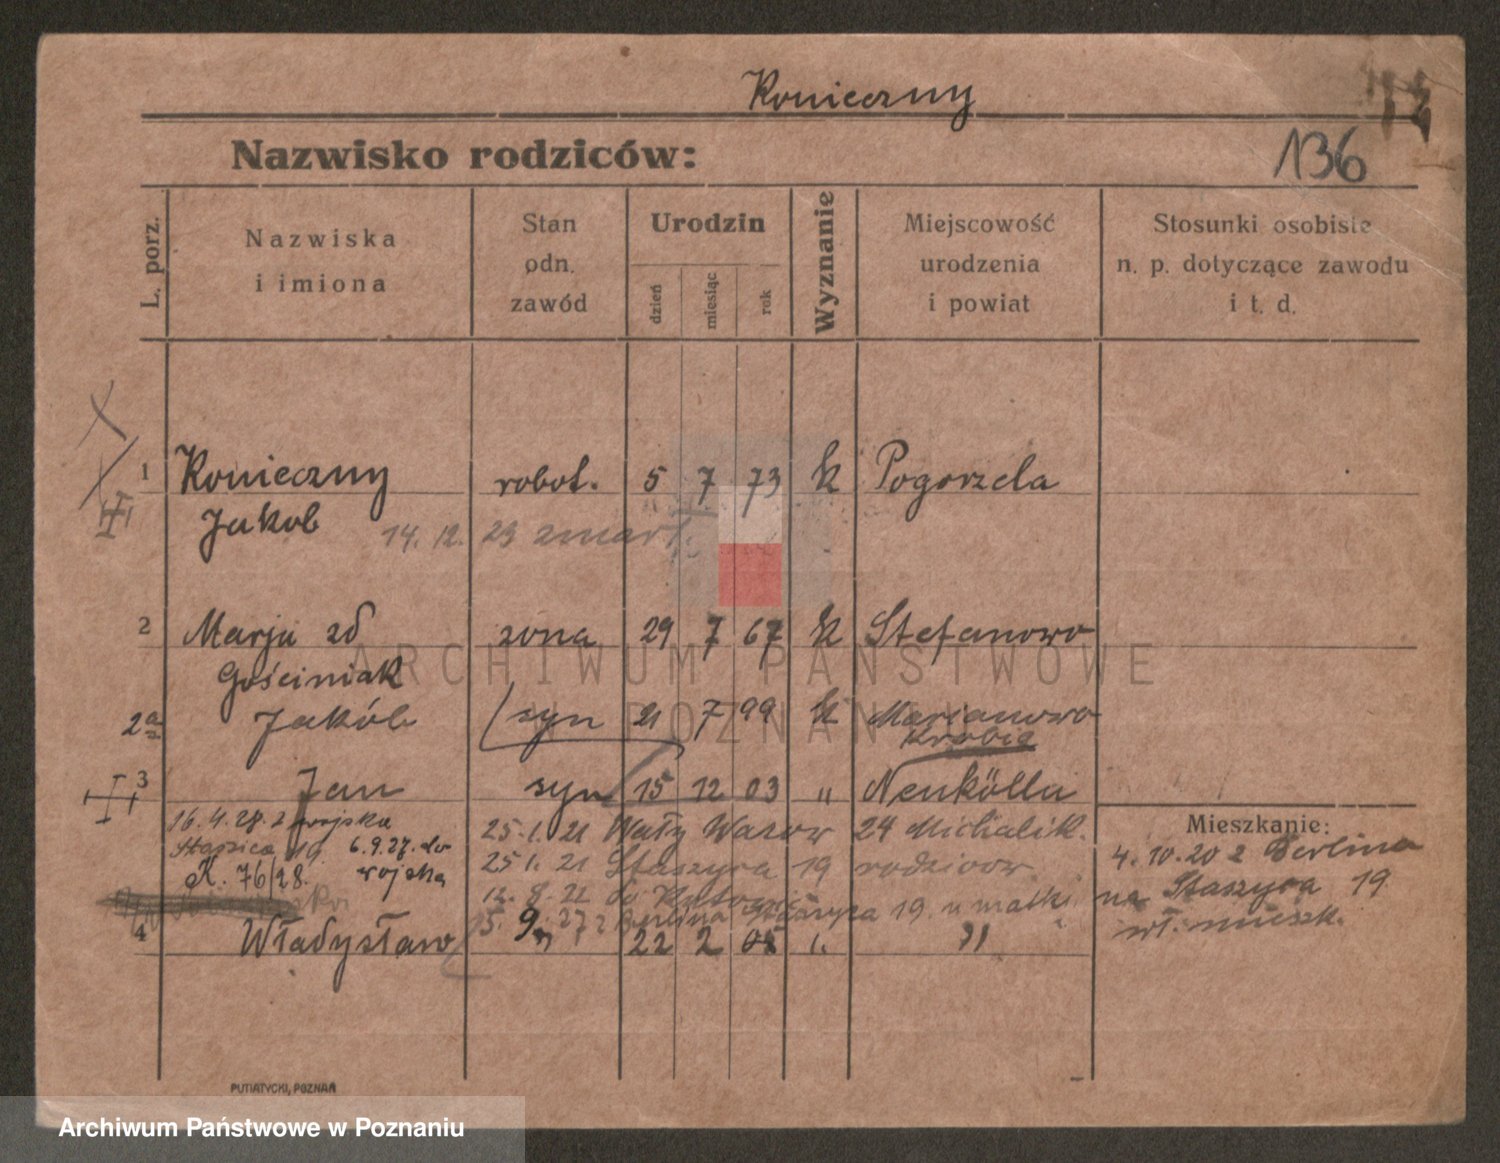 Konieczny
Nazwisko rodziców:
136
L. porz.
Nazwiska
i imiona
Stan
odn.
zawód
Urodzin
dzień
miesiąc
rok
Wyznanie
Miejscowość
urodzenia
i powiat
Stosunki osobiste
n. p. dotyczące zawodu
i t. d.
1 Konieczny robot. 5 7 73 k Pogorzela
Jakob 14. 12. 23 zmarł.
2 Marja zd żona 29 7 67 k Stefanowo
Gościniak
2a Jakób syn 21 7 99 k Marianowo
Krobia
3 Jan syn 15 12 03 " Neukölln
16.4.28. z wojska
25.1.21 Wały Wazow 24 Michalik.
Staszica 19 6.9.27. do
K. 76/28. wojska
25.1.21 Staszyca 19 rodziców.
12.8.22 do
15. 9. 27 z Berlina Staszyca 19. u matki
4 Władysław 22 2 "
Mieszkanie:
4.10.20 z Berlina
na Staszyca 19
wł. mieszk.
PUTIATYCKI, POZNAŃ
ARCHIWUM PAŃSTWOWE
W POZNANIU
Archiwum Państwowe w Poznaniu